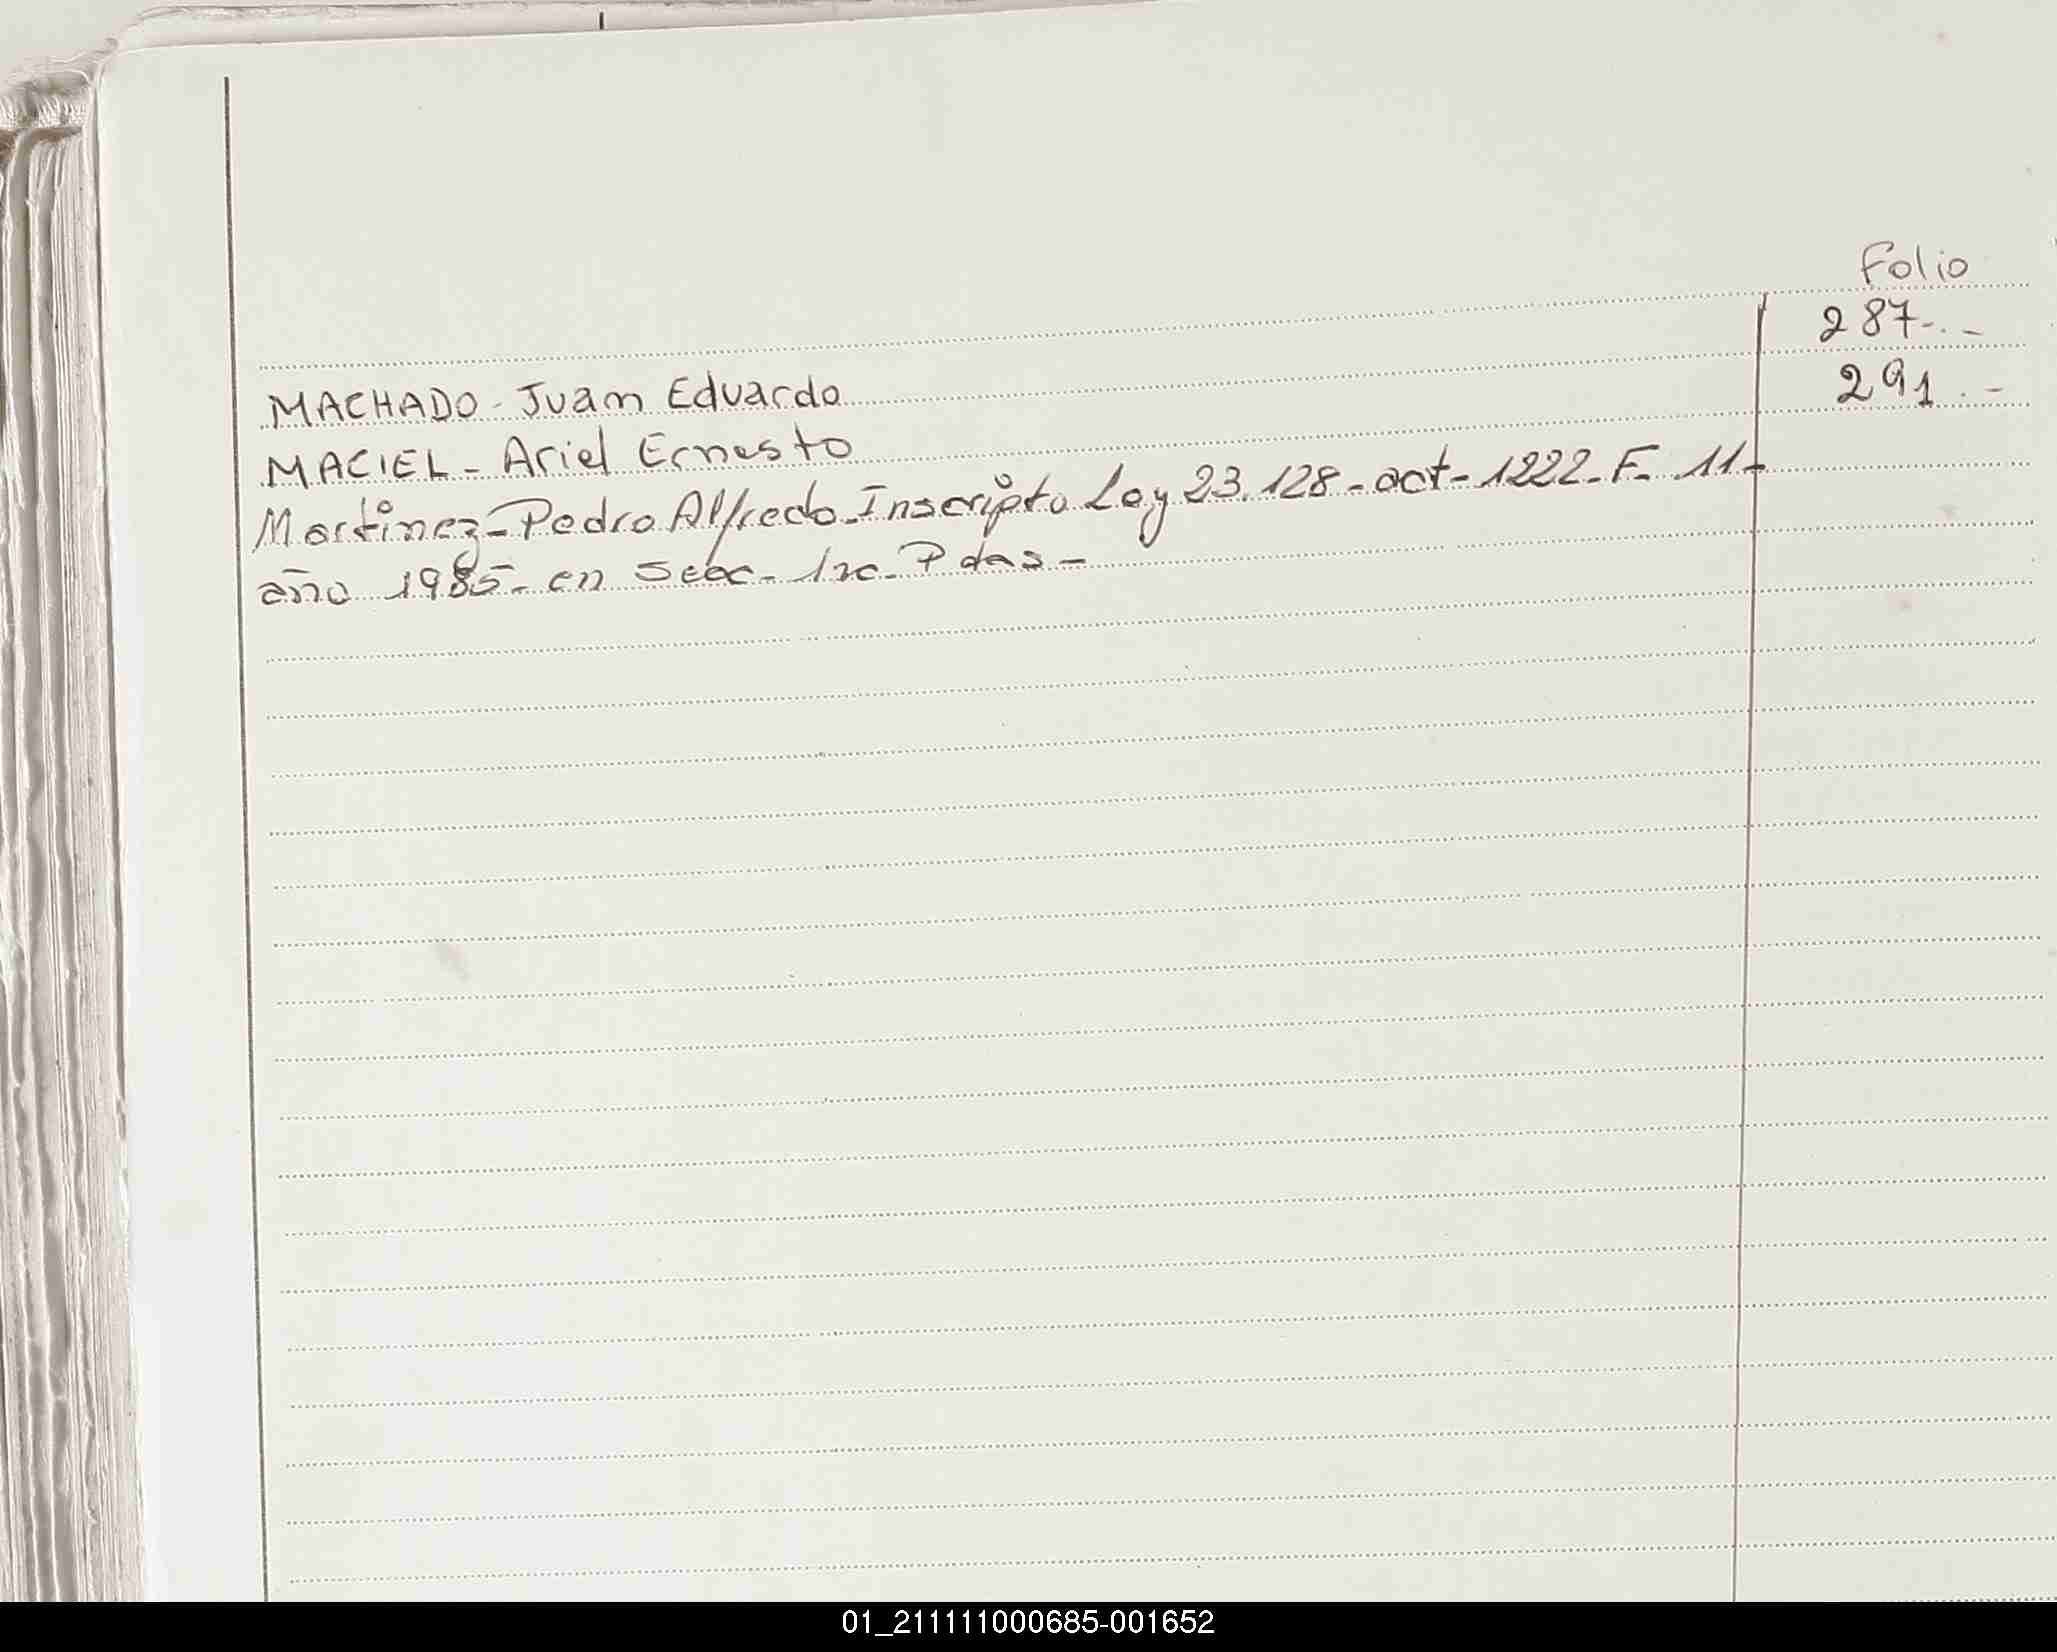 Folio
MACHADO - Juan Eduardo 287-.-
MACIEL - Ariel Ernesto 291.-
Martinez - Pedro Alfredo - Inscripto Ley 23.128 - act - 1222 - F - 11 -
año 1985 - en Secc - 1ra - Pdas -
01_211111000685-001652